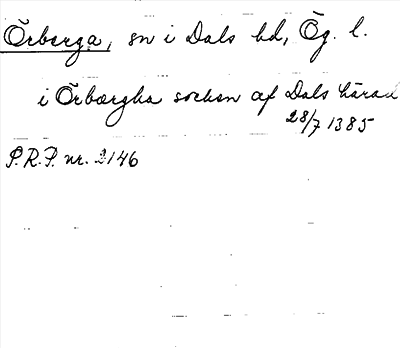 Örberga, sn i Dals hd, Ög. l.
i Örbærgha sochen af Dals härad
28/7 1385
P.R.P. nr. 2146